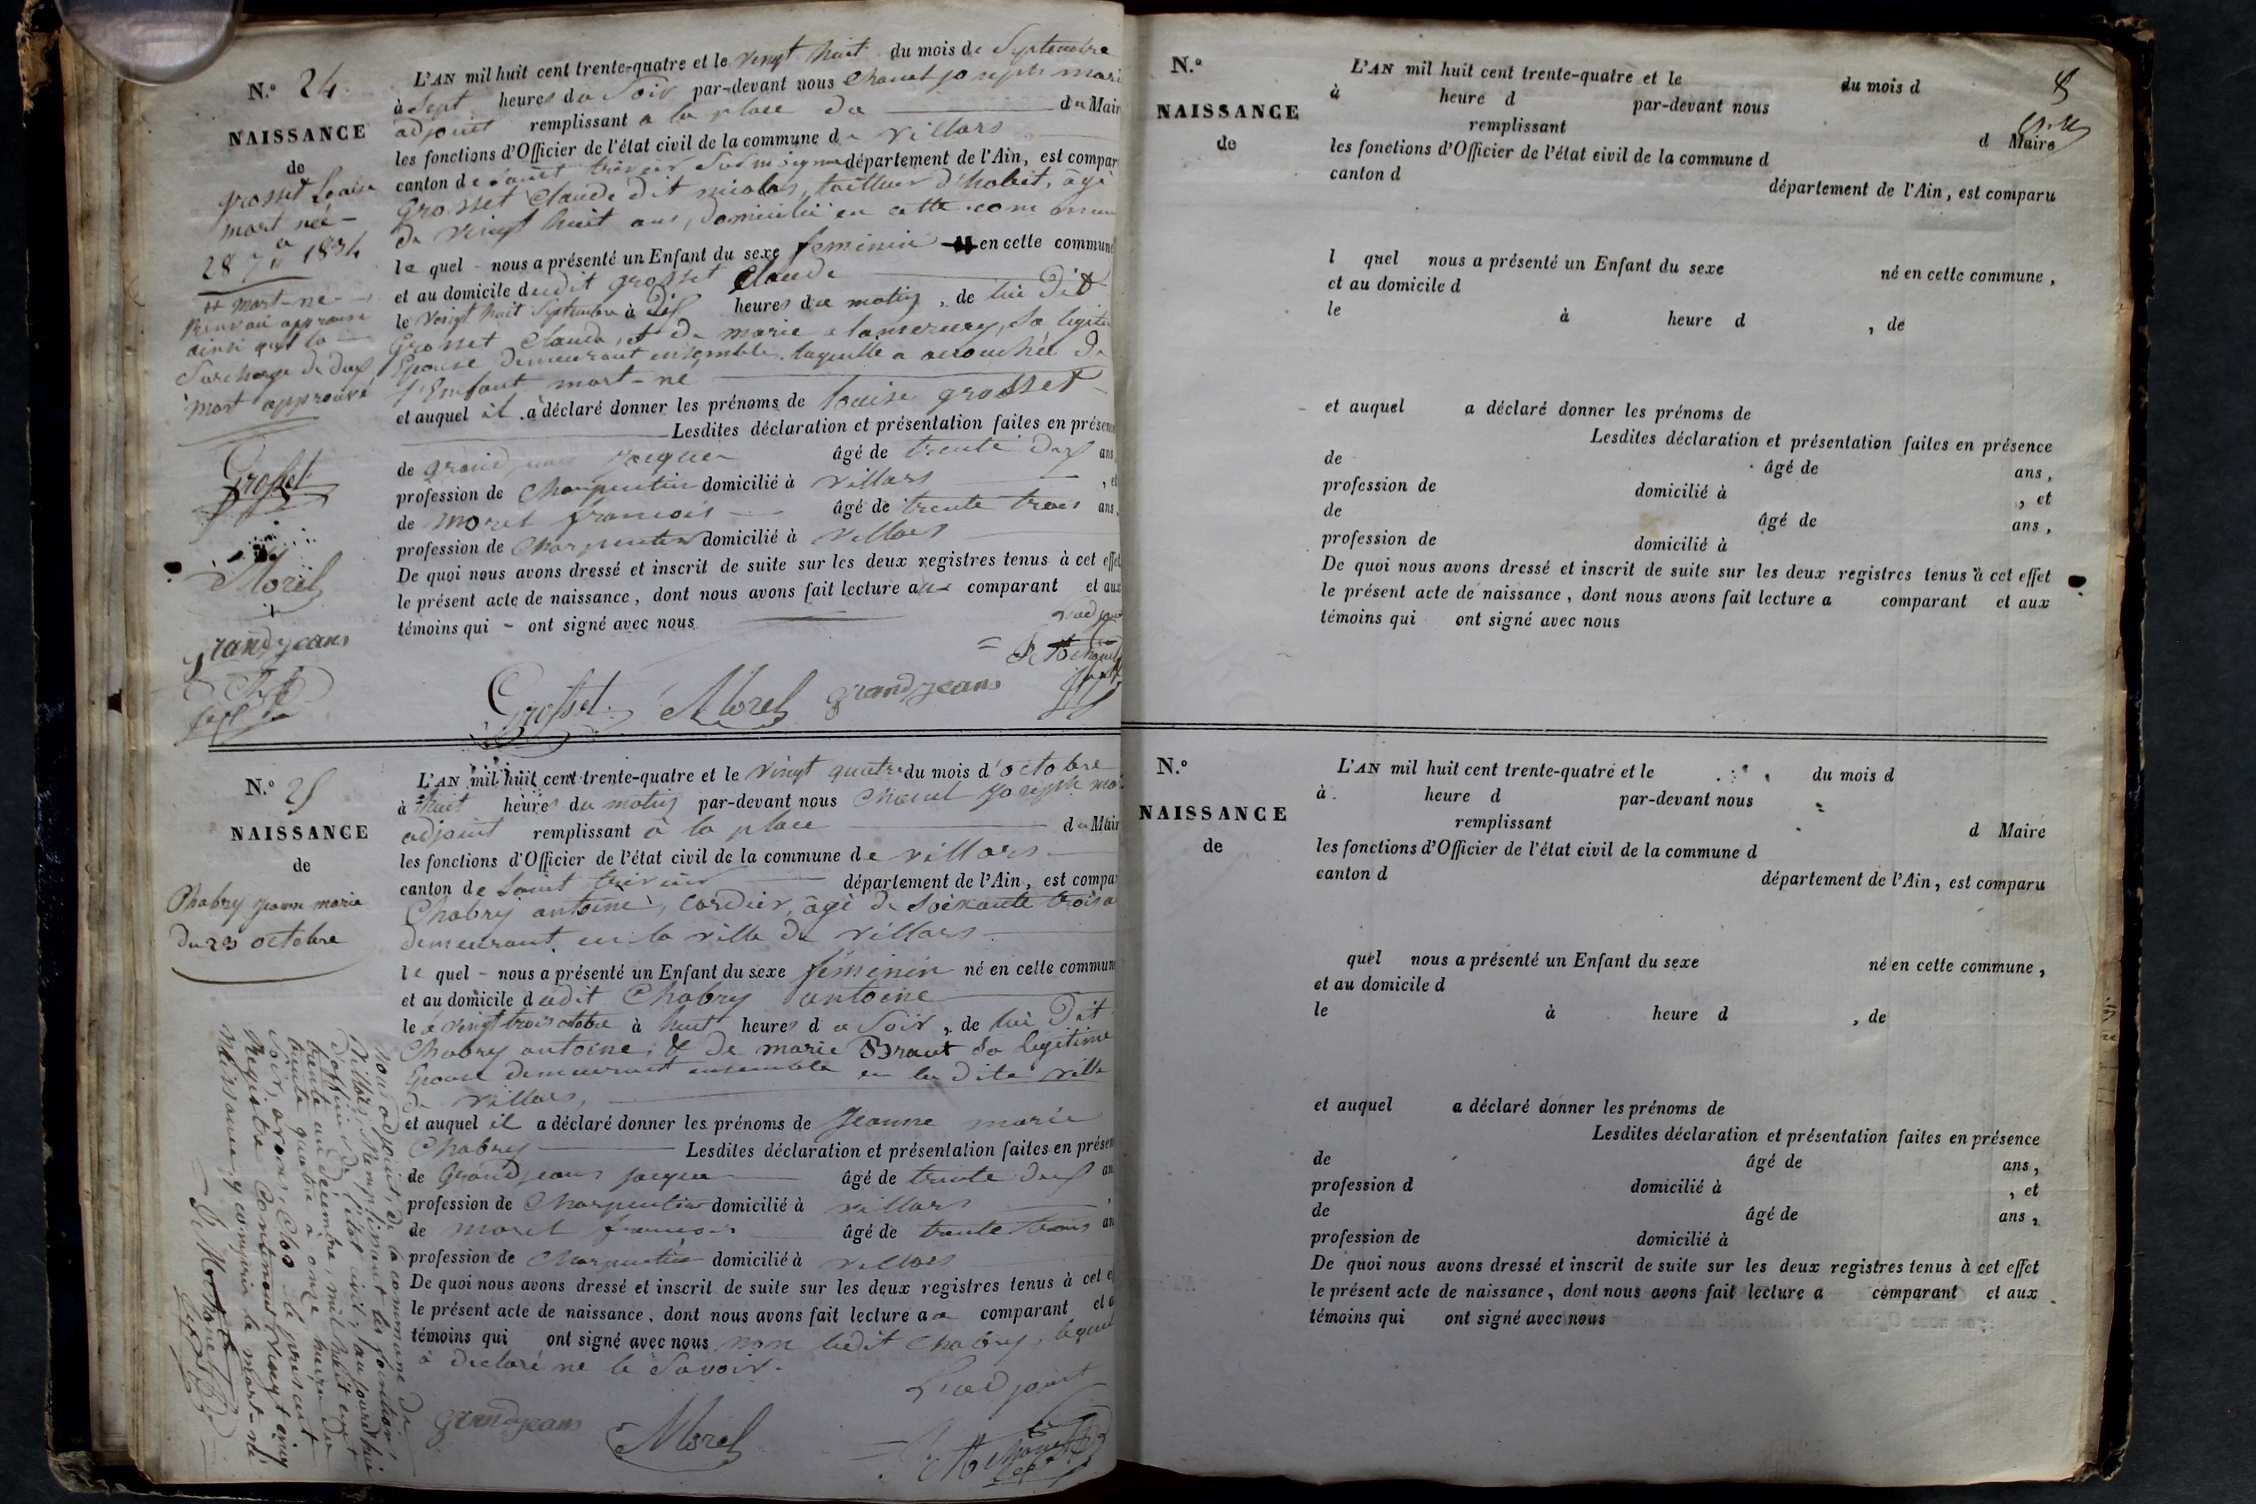 N.° 24
NAISSANCE
de
grosset Louise
mort née
28 7bre 1834
mort-né
Renvoi approuvé
ainsi que la
Surcharge de dix
mort approuvé
Grosset
Morel
grandjean
L'AN mil huit cent trente-quatre et le vingt huit du mois de Septembre
à Sept heures du Soir par-devant nous Chanel joseph marie
adjoint remplissant à la place du du Maire
les fonctions d'Officier de l'état civil de la commune de villars
canton de saint trivier Soussigné département de l'Ain, est comparu
grosset Claude dit nicolas, tailleur d'habit, âgé
de vingt huit ans, domicilié en cette commune
le quel - nous a présenté un Enfant du sexe feminin en cette commune
et au domicile dudit grosset Claude
le vingt huit Septembre à dix heures du matin, de lui dit
Grosset Claude, et de marie, sa legitime
Epouse demeurant ensemble, laquelle a accouchée de
l'Enfant mort-né
et auquel il a déclaré donner les prénoms de louise grosset
Lesdites déclaration et présentation faites en présence
de grandjean jacques âgé de trente deux ans,
profession de charpentier domicilié à villars, et
de morel francois âgé de trente trois ans,
profession de charpentier domicilié à villars
De quoi nous avons dressé et inscrit de suite sur les deux registres tenus à cet effet
le présent acte de naissance, dont nous avons fait lecture aux comparant et aux
témoins qui - ont signé avec nous
l'adjoint
Grosset Morel grandjean
N.° 25
NAISSANCE
de
Chabry jeanne marie
du 23 octobre
L'AN mil huit cent trente-quatre et le vingt quatre du mois d'octobre
à huit heures du matin par-devant nous Chanel joseph marie
adjoint remplissant à la place du Maire
les fonctions d'Officier de l'état civil de la commune de villars
canton de saint trivier département de l'Ain, est comparu
Chabry antoine, cordier, âgé de soixante trois a
demeurant en la ville de villars
le quel - nous a présenté un Enfant du sexe féminin né en cette commune
et au domicile dudit Chabry antoine
le vingt trois octobre à huit heures du Soir, de lui dit
Chabry antoine, & de marie Braut sa legitime
Epouse demeurant ensemble en la dite ville
de villars,
et auquel il a déclaré donner les prénoms de jeanne marie
Chabry Lesdites déclaration et présentation faites en présence
de grandjean jacques âgé de trente deux ans
profession de charpentier domicilié à villars
de morel francois âgé de trente trois ans
profession de charpentier domicilié à villars
De quoi nous avons dressé et inscrit de suite sur les deux registres tenus à cet effet
le présent acte de naissance, dont nous avons fait lecture au comparant et aux
témoins qui ont signé avec nous non ledit Chabry, lequel
a declaré ne le Savoir.
L'adjoint
grandjean Morel
nous adjoint de la commune de
Villars, Remplissant les fonctions
d'officier de l'état civil, aujourd'hui
trente un decembre, mil huit cent
trente quatre à onze heures du
Soir, avons Clos le present
Registre Contenant vingt cinq
Naissances, y compris le mort-né
N.°
NAISSANCE
de
L'AN mil huit cent trente-quatre et le du mois d
à heure d par-devant nous
remplissant d Maire
les fonctions d'Officier de l'état civil de la commune d
canton d
département de l'Ain, est comparu
l quel nous a présenté un Enfant du sexe né en cette commune,
et au domicile d
le à heure d , de
et auquel a déclaré donner les prénoms de
Lesdites déclaration et présentation faites en présence
de âgé de ans,
profession de domicilié à , et
de âgé de ans,
profession de domicilié à
De quoi nous avons dressé et inscrit de suite sur les deux registres tenus à cet effet
le présent acte de naissance, dont nous avons fait lecture a comparant et aux
témoins qui ont signé avec nous
N.°
NAISSANCE
de
L'AN mil huit cent trente-quatre et le du mois d
à heure d par-devant nous
remplissant d Maire
les fonctions d'Officier de l'état civil de la commune d
canton d
département de l'Ain, est comparu
quel nous a présenté un Enfant du sexe né en cette commune,
et au domicile d
le à heure d , de
et auquel a déclaré donner les prénoms de
Lesdites déclaration et présentation faites en présence
de âgé de ans,
profession d domicilié à , et
de âgé de ans,
profession de domicilié à
De quoi nous avons dressé et inscrit de suite sur les deux registres tenus à cet effet
le présent acte de naissance, dont nous avons fait lecture a comparant et aux
témoins qui ont signé avec nous